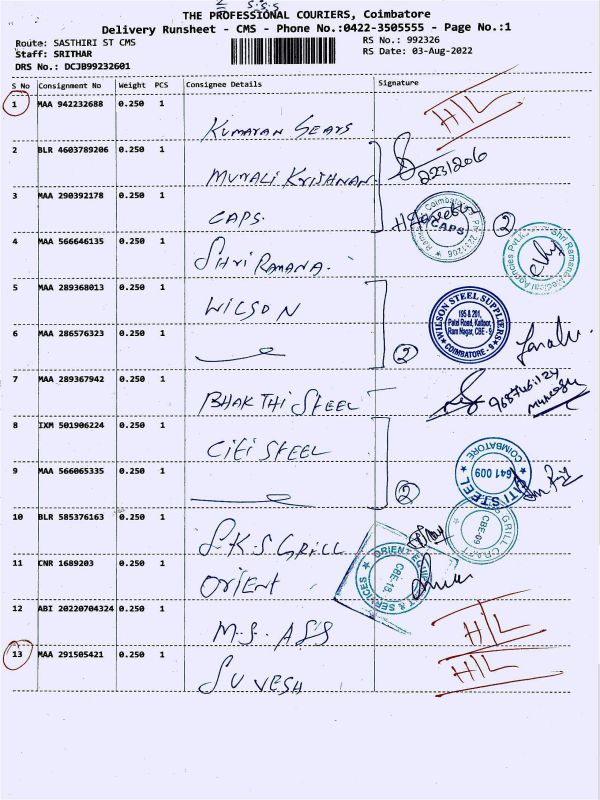 S.S.S
THE PROFESSIONAL COURIERS, Coimbatore
Delivery Runsheet - CMS - Phone No.:0422-3505555 - Page No.:1
Route: SASTHIRI ST CMS
RS No.: 992326
Staff: SRITHAR
RS Date: 03-Aug-2022
DRS No.: DCJB99232601
S No Consignment No Weight PCS Consignee Details Signature
1 MAA 942232688 0.250 1 H/L
Kumaran Gears
2 BLR 4603789206 0.250 1
Murali Krishnan 2231206
3 MAA 290392178 0.250 1
CAPS. CAPS
2
4 MAA 566646135 0.250 1
Shri Ramana.
5 MAA 289368013 0.250 1
WILSON
WILSON STEEL SUPPLIERS
185 & 201,
Patel Road, Kattoor,
Ram Nagar, CBE - 9
COIMBATORE - 9
6 MAA 286576323 0.250 1
2
7 MAA 289367942 0.250 1
BHAKTHI STEEL
8 IXM 501906224 0.250 1
CITI STEEL
COIMBATORE
641 009
9 MAA 566065335 0.250 1
2
10 BLR 585376163 0.250 1
S.K.S GRILL
GRILL CRAFT
CBE-09
11 CNR 1689203 0.250 1
ORIENT
CBE-18.
& SERVICES
12 ABI 20220704324 0.250 1
M.S. ASS H/L
13 MAA 291505421 0.250 1
SUVESH H/L